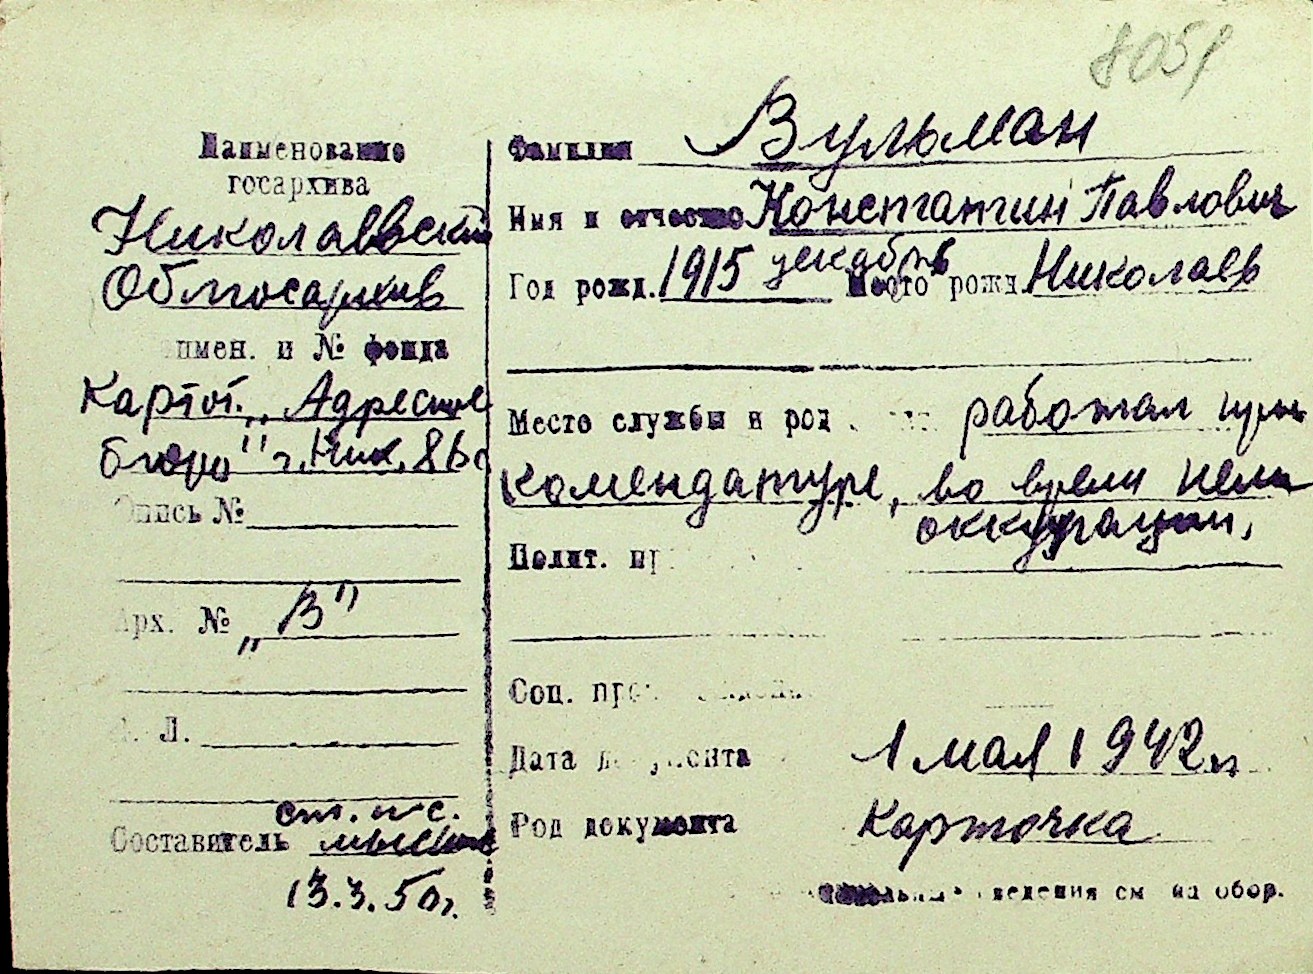 805
Наименование
госархива
Николаевский
Облгосархив
имен. и № фонда
Картот. „Адресное
бюро" г. Ник. 86
Опись №
Арх. № „В"
Л.
ст. н-с.
Составитель
13.3.50г.
Фамилия Вульман
Имя и отчество Константин Павлович
Год рожд. 1915 декабрь Место рожд. Николаев
Место службы и род работал при
комендатуре, во время нем.
оккупации,
Полит. пр
Соц. про
Дата документа 1 мая 1942 г.
Род документа Карточка
ведения см на обор.